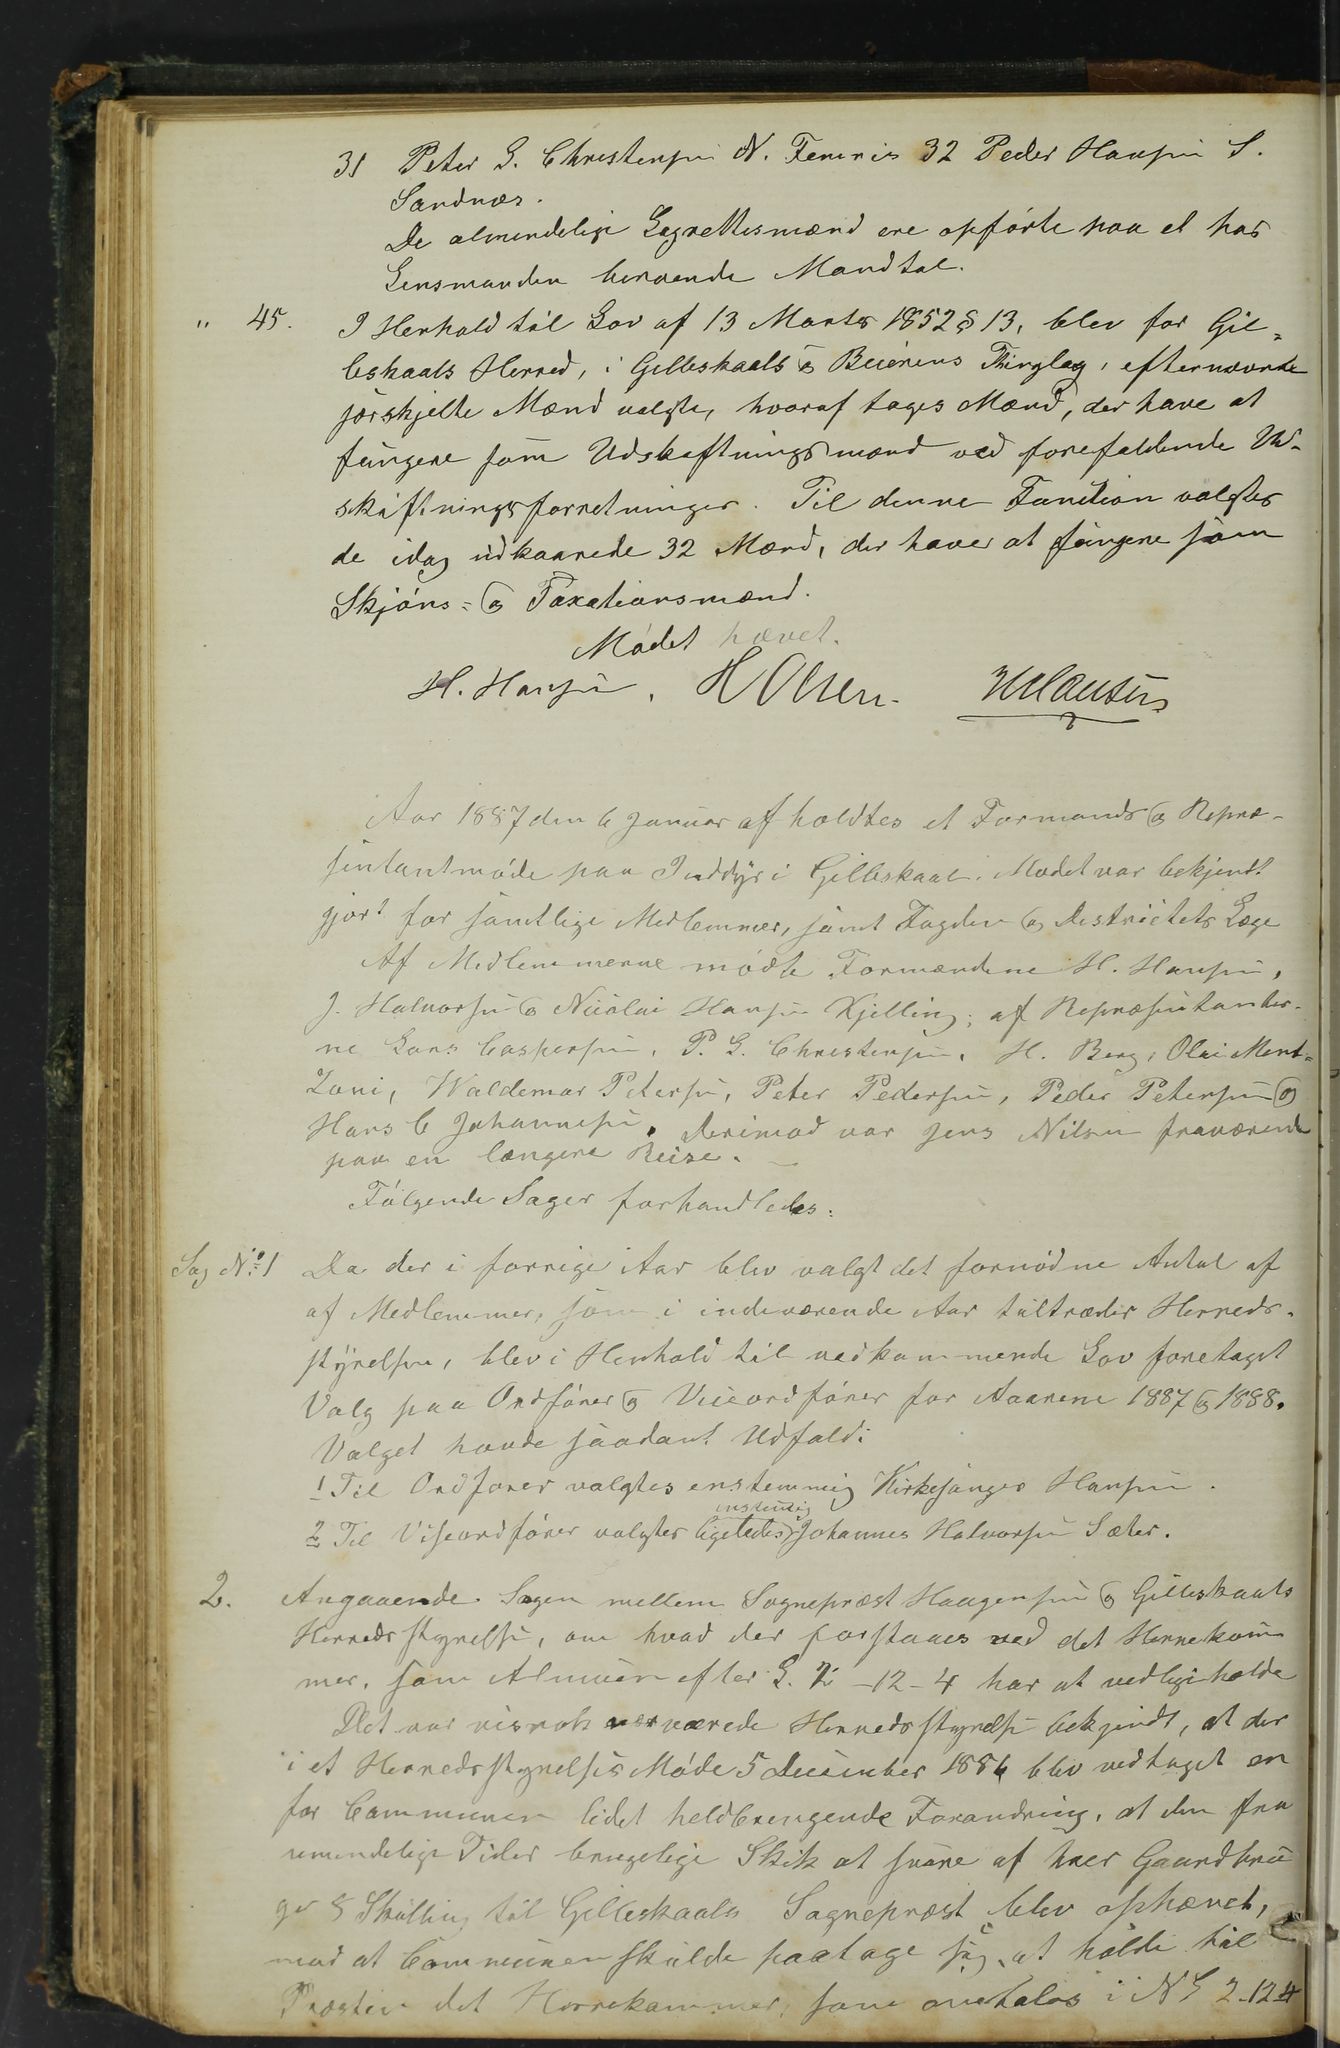 31 Peter G. Christensen N. Femris 32 Peder Hansen S.
Sandnæs.
De almindelige Lagrettesmænd ere opførte paa et hos
Lensmanden beroende Mandtal.
" 45. I Henhold til Lov af 13 Marts 1852 § 13, blev for Gil-
leskaals Herred, i Gilleskaals og Beierens Thinglag, efternævnte
særskjelte Mænd valgte, hvoraf tages Mænd, der have at
fungere som Udskiftningsmænd ved forefaldende Ud-
skiftningsforretninger. Til denne Function valgtes
de idag udkaarede 32 Mænd, der haver at fungere som
Skjøns- og Taxationsmænd.
Mødet hævet.
H. Hansen. H Olsen. 
Aar 1887 den 6 Januar afholdtes et Formands og Repræ-
sentantmøde paa Inddyr i Gilleskaal. Mødet var bekjendt
gjort for samtlige Medlemmer, samt Fogden og Districtets Læge
Af Medlemmerne mødte Formændene H. Hansen,
J. Halvorsen og Nicolai Hansen Kjelling; af Repræsentanter-
ne Lars Caspersen, P. G. Christensen, H. Berg, Olai Ment-
zoni, Waldemar Petersen, Peter Pedersen, Peder Petersen og
Hans C Johannesen. Derimod var Jens Nilsen fraværende
paa en længere Reise.
Følgende Sager forhandledes:
Sag No. 1 Da der i forrige Aar blev valgt det fornødne Antal af
af Medlemmer, som i indeværende Aar tiltræder Herreds-
styrelsen, blev i Henhold til vedkommende Lov foretaget
Valg paa Ordfører og Viceordfører for Aarene 1887 og 1888.
Valget havde saadant Udfald:
1 Til Ordfører valgtes enstemmig Kirkesanger Hansen.
2 Til Viseordfører valgtes ligeledes enstemmig Johannes Halvorsen Sæter.
2. Angaaende Sagen mellem Sognepræst Haagensen og Gilleskaals
Herredsstyrelse, om hvad der forstaaes ved det Herrekam
mer, som Almuen efter L. 2-12-4 har at vedligeholde
Det var nok værende Herredsstyrelse bekjendt, at der
i et Herredsstyrelses Møde 5 December 1886 blev vedtaget en
for Communen lidet heldbringende Forandring, at den fra
umindelige Tider brugelige Skik at svare af hver Gaardbru
ger 8 Skilling til Gilleskaals Sognepræst blev ophævet,
mod at Communen skulde paatage sig, at holde til
Præsten det Herrekammer, som omtales i NL 2-12-4